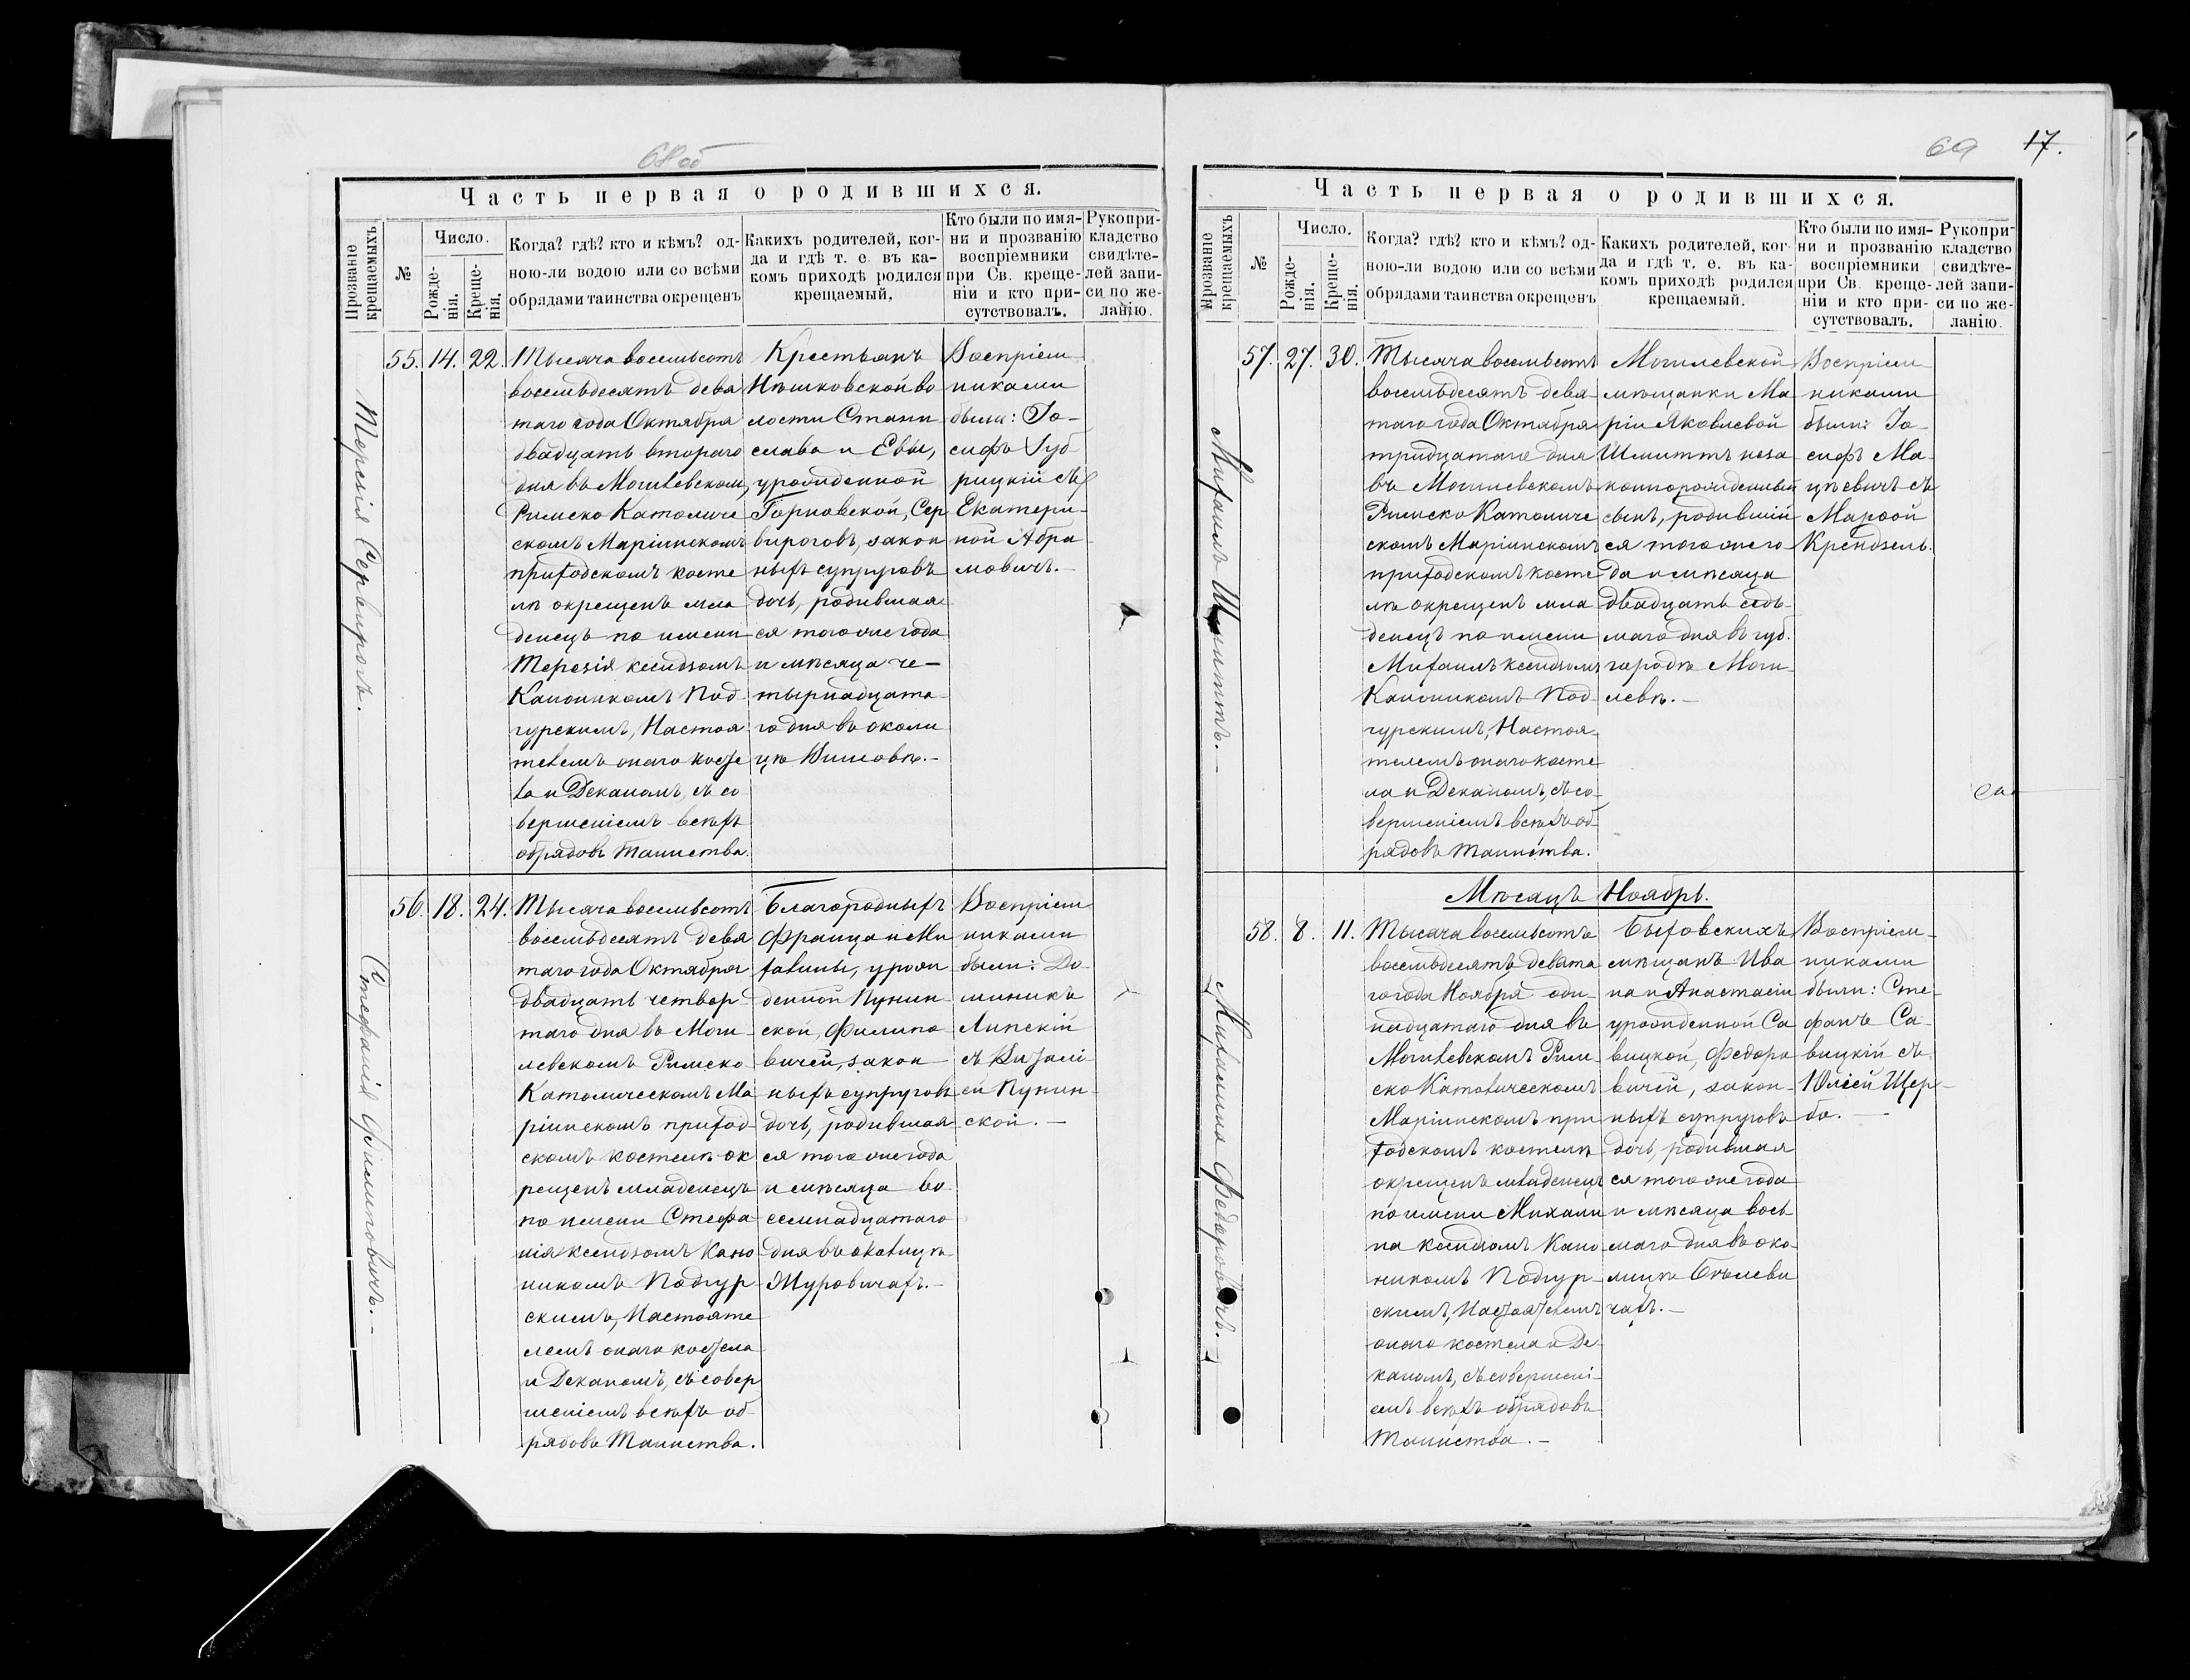 68 об
Часть первая о родившихся.
Прозваніе крещаемыхъ
№
Число.
Рожде-
нія.
Креще-
нія.
Когда? гдѣ? кто и кѣмъ? од-
ною-ли водою или со всѣми
обрядами таинства окрещенъ
Какихъ родителей, ког-
да и гдѣ т. е. въ ка-
комъ приходѣ родился
крещаемый.
Кто были по имя-
ни и прозванію
воспріемники
при Св. креще-
ніи и кто при-
сутствовалъ.
Рукопри-
кладство
свидѣте-
лей запи-
си по же-
ланію.
Терезія Сервирогъ.
55. 14. 22.
Тысяча восемьсотъ
восемьдесятъ девя
таго года Октября
двадцать втораго
дня въ Могилевскомъ
Римско Католиче
скомъ Маріинскомъ
приходскомъ косте
лѣ окрещенъ мла
денецъ по имени
Терезія ксендзомъ
Каноникомъ Под-
гурскимъ, Настоя
телемъ онаго косте
ла и Деканомъ, съ со
вершеніемъ всѣхъ
обрядовъ таинства.
Крестьянъ
Нѣшковской во
лости Стани
слава и Евы,
урожденной
Горновской, Сер
вироговъ, закон
ныхъ супруговъ
дочь, родившая
ся того же года
и мѣсяца че-
тырнадцата
го дня въ околи
цѣ
Воспріем-
никами
были: Іо-
сифъ
съ
Екатери-
ной Абра
мовичъ.-
Стефанія Филиповичъ.-
56. 18. 24.
Тысяча восемьсотъ
восемьдесятъ девя
таго года Октября
двадцать четвер-
таго дня въ Моги
левскомъ Римско
Католическомъ Ма
ріинскомъ приход-
скомъ костелѣ ок
рещенъ младенецъ
по имени Стефа
нія ксендзомъ Кано
никомъ Подгур-
скимъ, Настояте
лемъ онаго костела
и Деканомъ, съ совер
шеніемъ всѣхъ об-
рядовъ таинства.
Благородныхъ
Франца и Ми
халины, урож
денной Пунин-
ской, Филипо
вичей, закон-
ныхъ супруговъ
дочь, родившая
ся того же года
и мѣсяца во-
семнадцатаго
дня въ околицѣ
Журовичахъ.-
Воспріем
никами
были: До-
миникъ
Липскій
съ
Пунин-
ской.-
69 17.
Часть первая о родившихся.
Прозваніе крещаемыхъ
№
Число.
Рожде-
нія.
Креще-
нія.
Когда? гдѣ? кто и кѣмъ? од-
ною-ли водою или со всѣми
обрядами таинства окрещенъ
Какихъ родителей, ког-
да и гдѣ т. е. въ ка-
комъ приходѣ родился
крещаемый.
Кто были по имя-
ни и прозванію
воспріемники
при Св. креще-
ніи и кто при-
сутствовалъ.
Рукопри-
кладство
свидѣте-
лей запи-
си по же-
ланію.
Михаилъ Шмиттъ.-
57. 27. 30.
Тысяча восемьсотъ
восемьдесятъ девя-
таго года Октября
тридцатаго дня
въ Могилевскомъ
Римско Католиче
скомъ Маріинскомъ
приходскомъ косте
лѣ окрещенъ мла
денецъ по имени
Михаилъ ксендзомъ
Каноникомъ Под-
гурскимъ, Настоя-
телемъ онаго косте
ла и Деканомъ, съ со-
вершеніемъ всѣхъ об-
рядовъ таинства.
Могилевской
мѣщанки Ма
ріи Яковлевой
Шмиттъ неза-
коннорожденный
сынъ, родившій
ся того же го
да и мѣсяца
двадцать седь-
маго дня въ губ.
городѣ Моги-
левѣ.-
Воспріем
никами
были: Іо-
сифъ Ма-
цѣевичъ съ
Марфой
Крендзель.
Мѣсяцъ Ноябрь.
Михалина Федоровичъ.-
58. 8. 11.
Тысяча восемьсотъ
восемьдесятъ девята
го года Ноября оди-
надцатаго дня въ
Могилевскомъ Рим-
ско Католическомъ
Маріинскомъ при
ходскомъ костелѣ
окрещенъ младенецъ
по имени Михали
на ксендзомъ Кано
никомъ Подгур-
скимъ, Настоятелемъ
онаго костела и Де-
каномъ, съ совершені-
емъ всѣхъ обрядовъ
таинства.-
Быховскихъ
мѣщанъ Ива
на и Анастасіи
урожденной Са
вицкой, Федоро
вичей, закон-
ныхъ супруговъ
дочь, родившая
ся того же года
и мѣсяца вось
маго дня въ око-
лицѣ Бѣлеви
чахъ.-
Воспріем-
никами
были: Сте-
фанъ Са-
вицкій съ
Юліей Щер-
бо.-